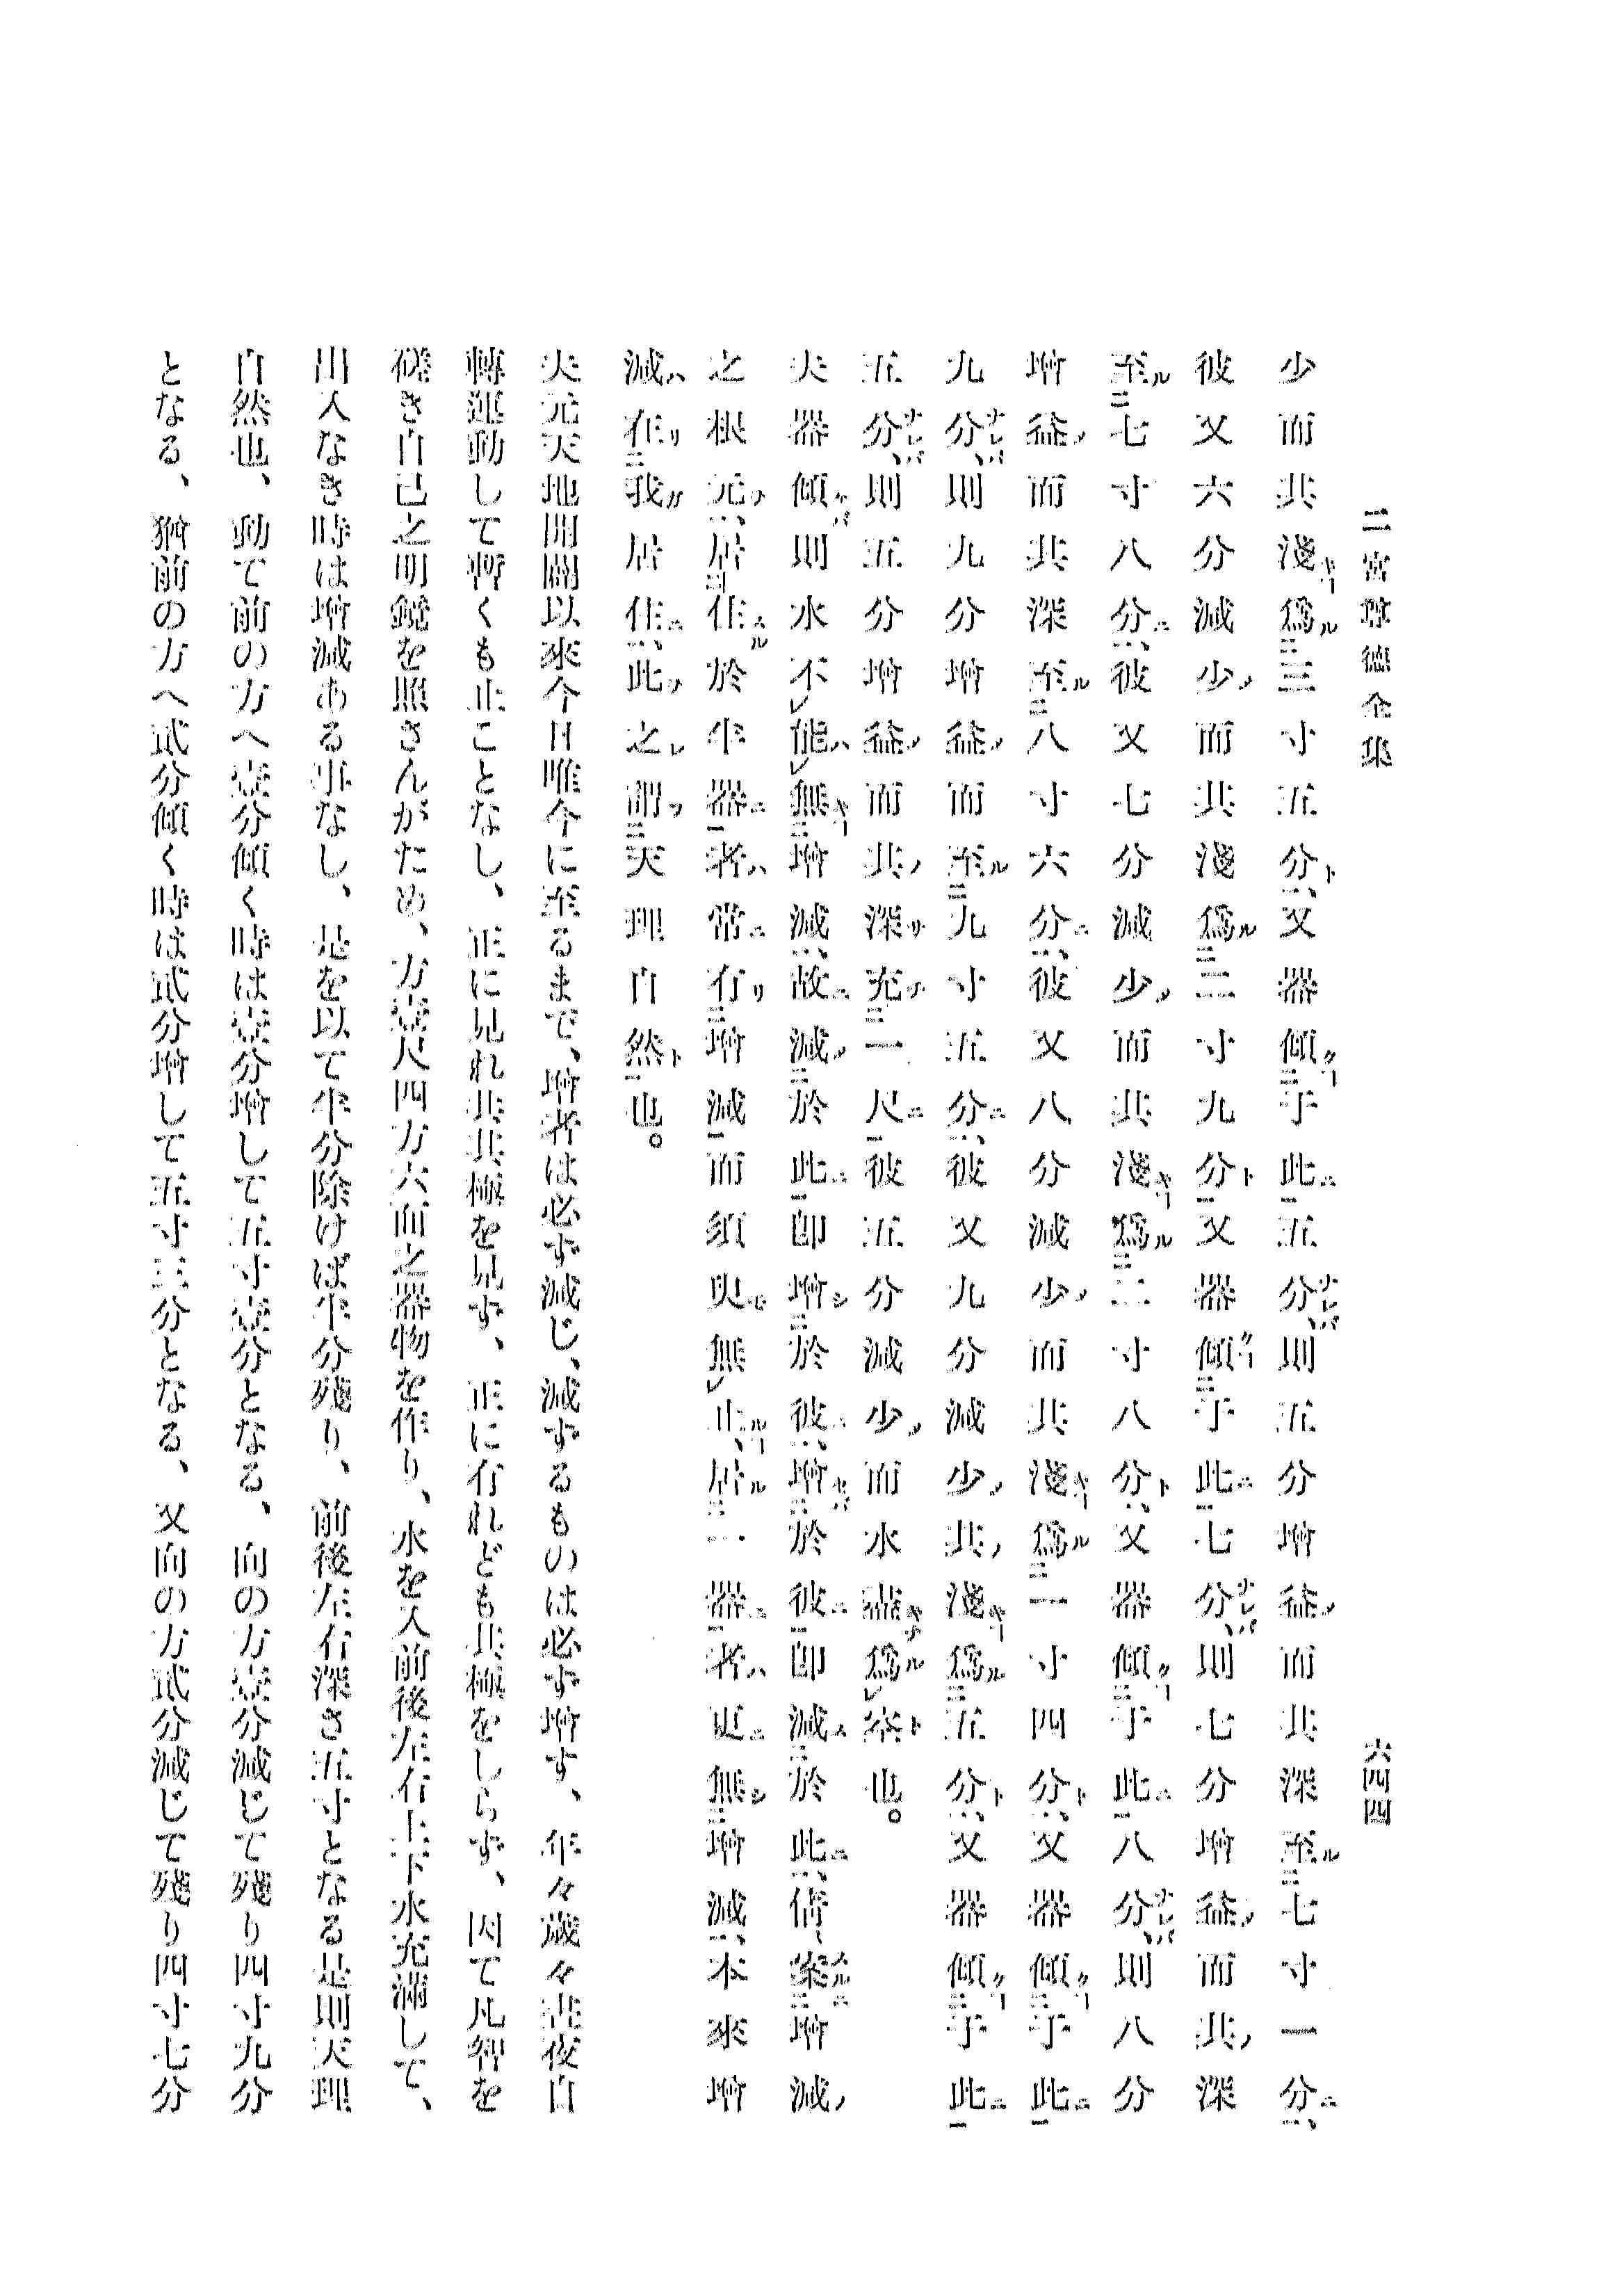 二宮尊德全集　六四四
少而其淺爲三寸五分、又器傾于此五分、則五分增益而其深至七寸一分、
彼又六分減少而其淺爲二寸九分又器傾于此七分、則七分增益而其深
至七寸八分、彼又七分減少而其淺爲二寸八分、又器傾于此八分、則八分
增益而其深至八寸六分、彼又八分減少而其淺爲一寸四分、又器傾于此
九分、則九分增益而至九寸五分、彼又九分減少其淺爲五分、又器傾于此
五分、則五分增益而其深充一尺彼五分減少而水盡爲空也。
夫器傾則水不能無增減、故減於此卽增於彼、增於彼卽減於此、倩案增減
之根元、居住於半器者常有增減而須臾無止、居一器者更無增減、本來增
減在我居住、此之謂天理自然也。
夫元天地開闢以來今日唯今に至るまで、增者は必ず減じ、減ずるものは必ず增す、年々歲々晝夜自
轉運動して暫くも止ことなし、正に見れ共其極を見ず、正に有れども其極をしらず、因て凡智を
磋き自己之明鏡を照さんがため、方壹尺四方六面之器物を作り、水を入前後左右上下水充滿して、
出入なき時は增減ある事なし、是を以て半分除けば半分殘り、前後左右深さ五寸となる是則天理
自然也、動て前の方へ壹分傾く時は壹分增して五寸壹分となる、向の方壹分減じて殘り四寸九分
となる、猶前の方へ貳分傾く時は貳分增して五寸三分となる、又向の方貳分減じて殘り四寸七分